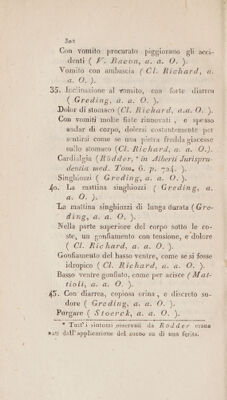 302
Con vomito procurato piggiorano gli acci-
denti ( V. Bacon, a. a. O. ).
Vomito con ambascia ( Cl. Richard, a.
a. O. ).
35. Inclinazione al vomito, con forte diarrea
( Greding, a. a. O. ).
Dolor di stomaco (Cl. Richard, a.a. O. ).
Con vomiti molte fiate rinnovati , e spesso
andar di corpo, dolersi costantemente per
sentirsi come se una pietra fredda giacesse
sullo stomaco (Cl. Richard, a. a. O.).
Cardialgia ( Rödder, * in Alberti Jurispru-
dentia med. Tom. 6. p. 724. ).
Singhiozzi ( Greding, a. a. O. ).
40. La mattina singhiozzi ( Greding, a.
a. O. ).
La mattina singhiozzi di lunga durata ( Gre-
ding, a. a. O. ).
Nella parte superiore del corpo sotto le co-
ste, un gonfiamento con tensione, e dolore
( Cl. Richard, a. a. O. ).
Gonfiamento del basso ventre, come se si fosse
idropico ( Cl. Richard, a. a. O. ).
Basso ventre gonfiato, come per ascite ( Mat-
tioli, a. a. O. ).
45. Con diarrea, copiosa orina , e discreto su-
dore ( Greding, a. a. O. ).
Purgare ( Stoerck, a. a. O. ).
* Tutt' i sintomi osservati da Rödder erano
nati dall' applicazione del succo su di una ferita.